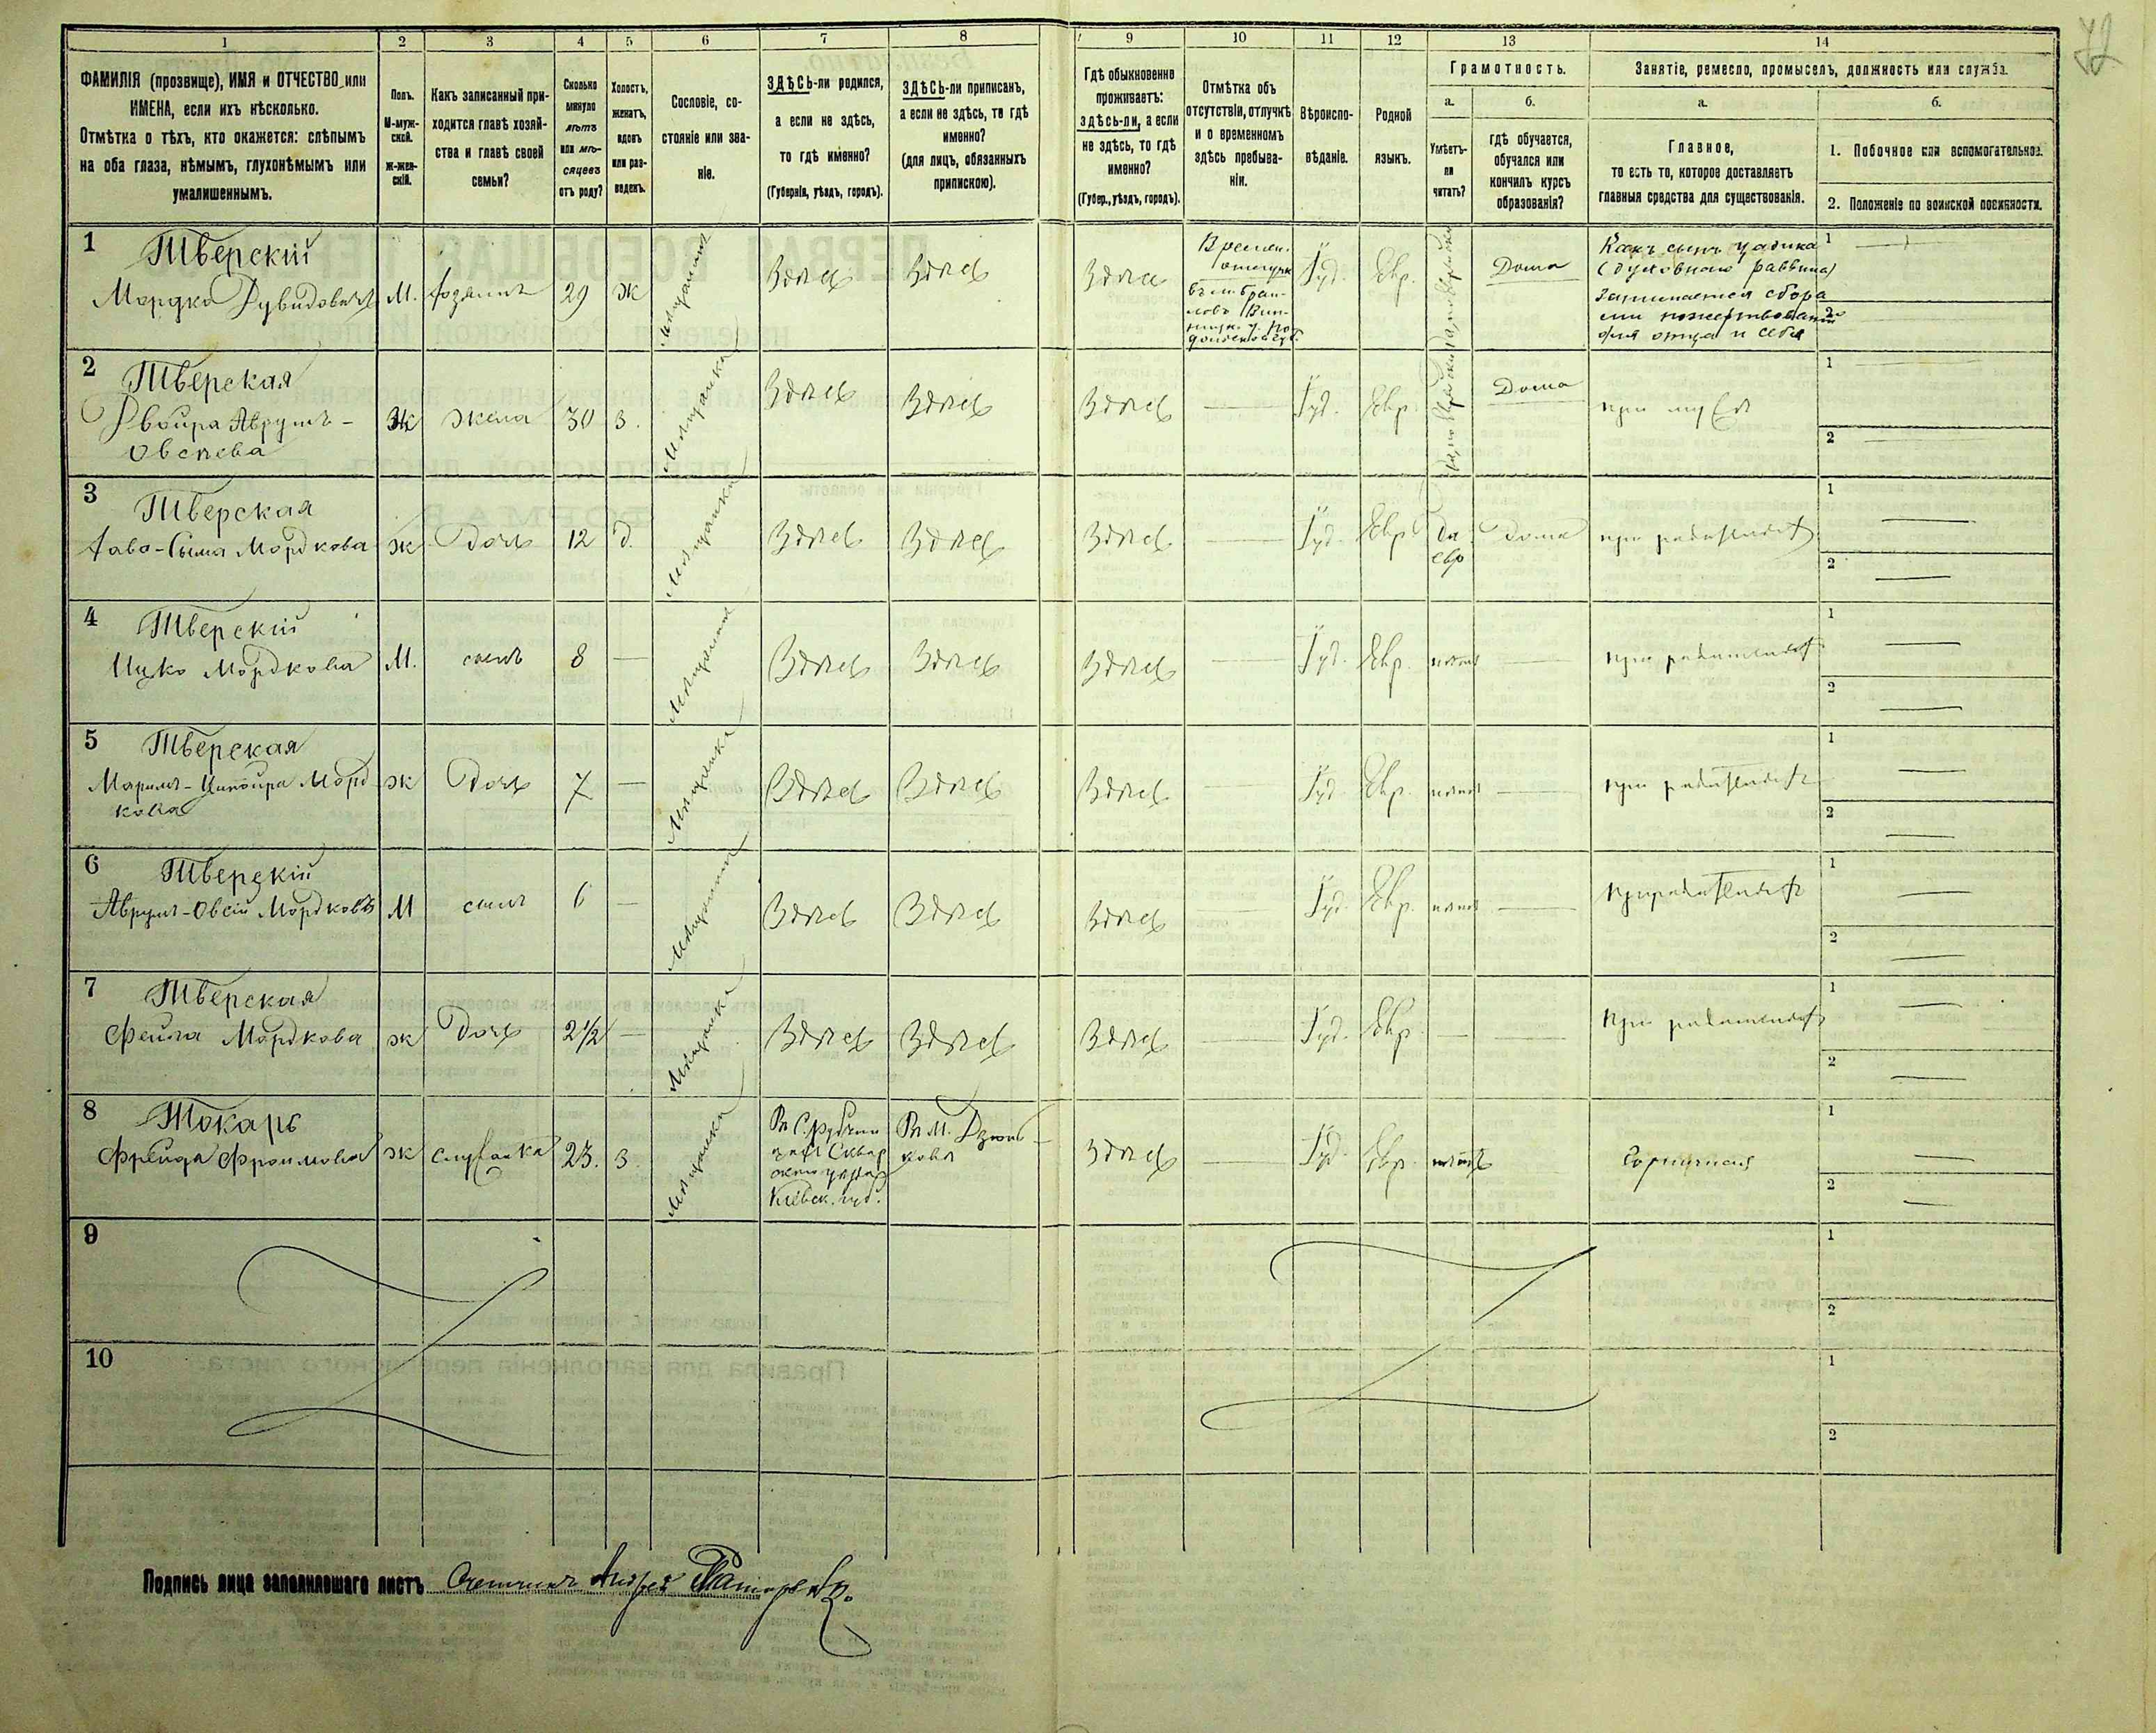 72
1 2 3 4 5 6 7 8 9 10 11 12 13 14
ФАМИЛІЯ (прозвище), ИМЯ и ОТЧЕСТВО или
ИМЕНА, если ихъ нѣсколько.
Отмѣтка о тѣхъ, кто окажется: слѣпымъ
на оба глаза, нѣмымъ, глухонѣмымъ или
умалишеннымъ.
Полъ.
М-муж-
ской.
Ж-жен-
скій.
Какъ записанный при-
ходится главѣ хозяй-
ства и главѣ своей
семьи?
Сколько
минуло
лѣтъ
или мѣ-
сяцевъ
отъ роду?
Холостъ,
женатъ,
вдовъ
или раз-
веденъ.
Сословіе, со-
стояніе или зва-
ніе.
ЗДѢСЬ-ли родился,
а если не здѣсь,
то гдѣ именно?
(Губернія, уѣздъ, городъ).
ЗДѢСЬ-ли приписанъ,
а если не здѣсь, то гдѣ
именно?
(для лицъ, обязанныхъ
припискою).
Гдѣ обыкновенно
проживаетъ:
здѣсь-ли, а если
не здѣсь, то гдѣ
именно?
(Губер., уѣздъ, городъ).
Отмѣтка объ
отсутствіи, отлучкѣ
и о временномъ
здѣсь пребыва-
ніи.
Вѣроиспо-
вѣданіе.
Родной
языкъ.
Грамотность.
а.
Умѣетъ-
ли
читать?
б.
гдѣ обучается,
обучался или
кончилъ курсъ
образованія?
Занятіе, ремесло, промыселъ, должность или служба.
а.
Главное,
то есть то, которое доставляетъ
главныя средства для существованія.
б.
1. Побочное или вспомогательное.
2. Положеніе по воинской повинности.
1 Тверскій
Мордко Дувидовичъ М. хозяинъ 29 ж мѣщанинъ Здѣсь Здѣсь Здѣсь
Времен.
отлучк
въ м. Браи-
ловъ Вин-
ницк. у. По-
дольской губ.
Іуд. Евр. Дома
Какъ сынъ цадика
(духовнаго раввина)
Занимается сбора
ми пожертвованій
для отца и себя
1
2
2 Тверская
Двойра Аврумъ-
Овсеева Ж жена 30 З. мѣщанка Здѣсь Здѣсь Здѣсь — Іуд. Евр. Дома при мужѣ
1
2
3 Тверская
Хаво-Сима Мордкова ж Дочь 12 д. мѣщанка Здѣсь Здѣсь Здѣсь — Іуд. Евр. да
евр Дома при родителяхъ
1
2
4 Тверскій
Ицко Мордковъ М. сынъ 8 — мѣщанинъ Здѣсь Здѣсь Здѣсь — Іуд. Евр. нѣтъ — при родителяхъ
1
2
5 Тверская
Маримъ-Ципойра Морд
кова ж Дочь 7 — мѣщанка Здѣсь Здѣсь Здѣсь — Іуд. Евр. нѣтъ — при родителяхъ
1
2
6 Тверскій
Аврумъ-Овсій Мордковъ М сынъ 6 — мѣщанинъ Здѣсь Здѣсь Здѣсь — Іуд. Евр. нѣтъ — при родителяхъ
1
2
7 Тверская
Фейга Мордкова ж Дочь 2 1/2 — мѣщанка Здѣсь Здѣсь Здѣсь — Іуд. Евр. — — при родителяхъ
1
2
8 Токарь
Фрейда Фроимова ж служанка 23. З. мѣщанка
Сквир
скаго уѣзда
Кіевск. губ.
Въ м. Дзюнь-
ковѣ
Здѣсь — Іуд. Евр. нѣтъ Горничная
1
2
9
1
2
10
1
2
Подпись лица заполнявшаго листъ Счетчикъ Андрей